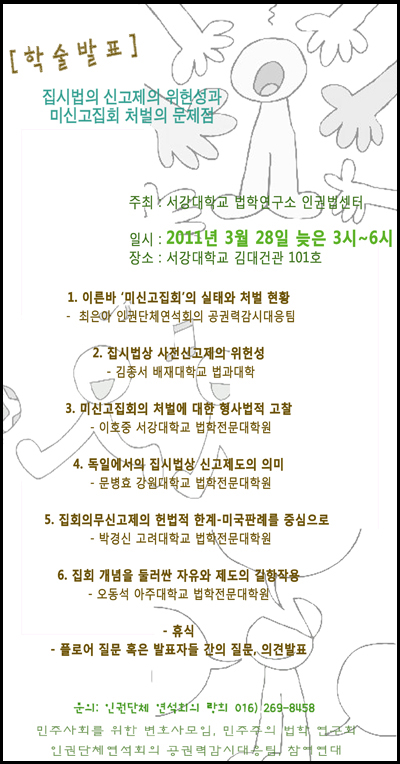 [학술발표]
집시법의 신고제의 위헌성과
미신고집회 처벌의 문제점
주최 : 서강대학교 법학연구소 인권법센터
일시 : 2011년 3월 28일 늦은 3시~6시
장소 : 서강대학교 김대건관 101호
1. 이른바 '미신고집회'의 실태와 처벌 현황
- 최은아 인권단체연석회의 공권력감시대응팀
2. 집시법상 사전신고제의 위헌성
- 김종서 배재대학교 법과대학
3. 미신고집회의 처벌에 대한 형사법적 고찰
- 이호중 서강대학교 법학전문대학원
4. 독일에서의 집시법상 신고제도의 의미
- 문병효 강원대학교 법학전문대학원
5. 집회의무신고제의 헌법적 한계-미국판례를 중심으로
- 박경신 고려대학교 법학전문대학원
6. 집회 개념을 둘러싼 자유와 제도의 길항작용
- 오동석 아주대학교 법학전문대학원
- 휴식
- 플로어 질문 혹은 발표자들 간의 질문, 의견발표
문의: 인권단체 연석회의 랑희 016) 269-8458
민주사회를 위한 변호사모임, 민주주의 법학 연구회
인권단체연석회의 공권력감시대응팀, 참여연대